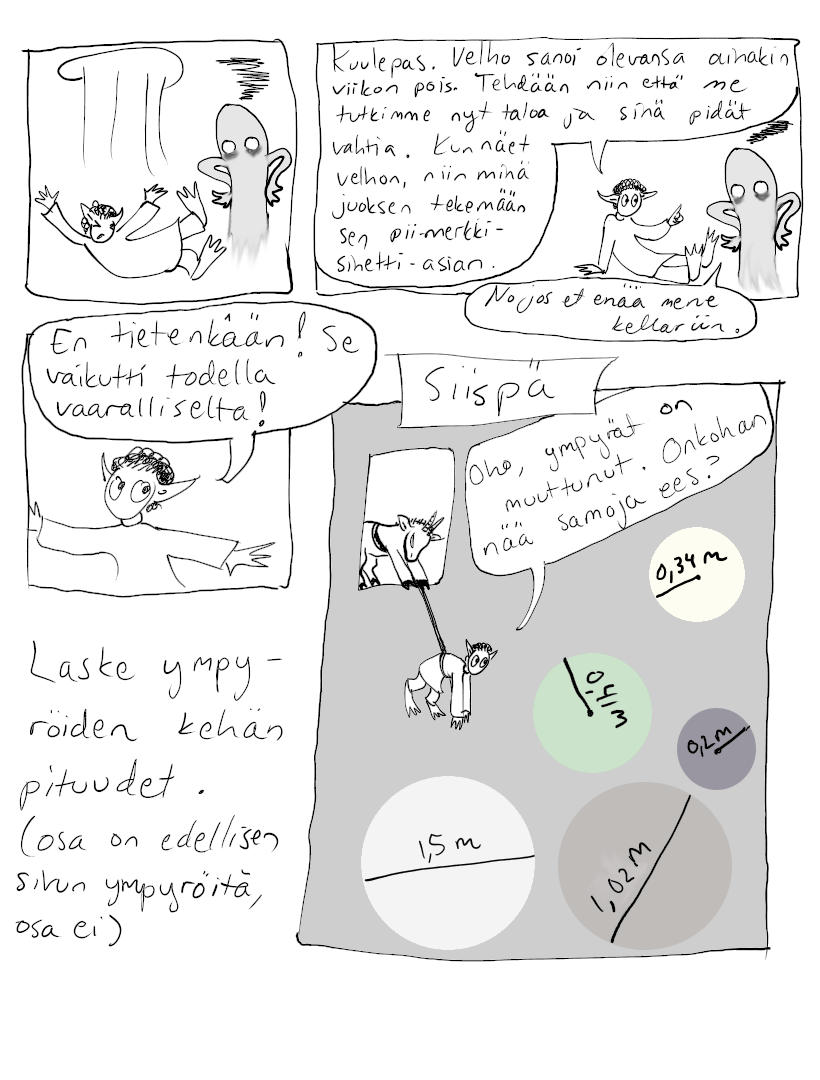 Kuulepas. Velho sanoi olevansa ainakin
viikon pois. Tehdään niin että me
tutkimme nyt taloa ja sinä pidät
vahtia. Kun näet
velhon, niin minä
juoksen tekemään
sen pii-merkki-
sihetti-asian.
No jos et enää mene
kellariin.
En tietenkään! Se
vaikutti todella
vaaralliselta!
Siispä
Oho, ympyrät on
muuttunut. Onkohan
nää samoja ees?
0,34 m
0,41 m
0,2 m
1,5 m
1,02 m
Laske ympy-
röiden kehän
pituudet.
(osa on edellisen
sivun ympyröitä,
osa ei)